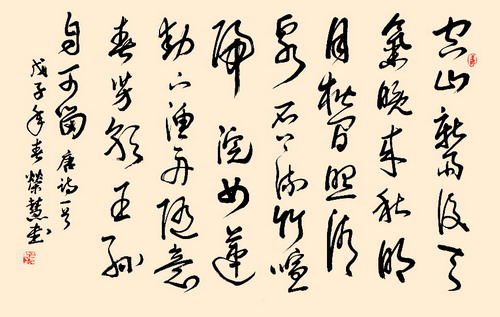 空山新雨後天
氣晚來秋明
月松間照清
泉石上流竹喧
歸浣女蓮
動下漁舟隨意
春芳歇王孫
自可留 唐詩一首
戊子年春榮慧書